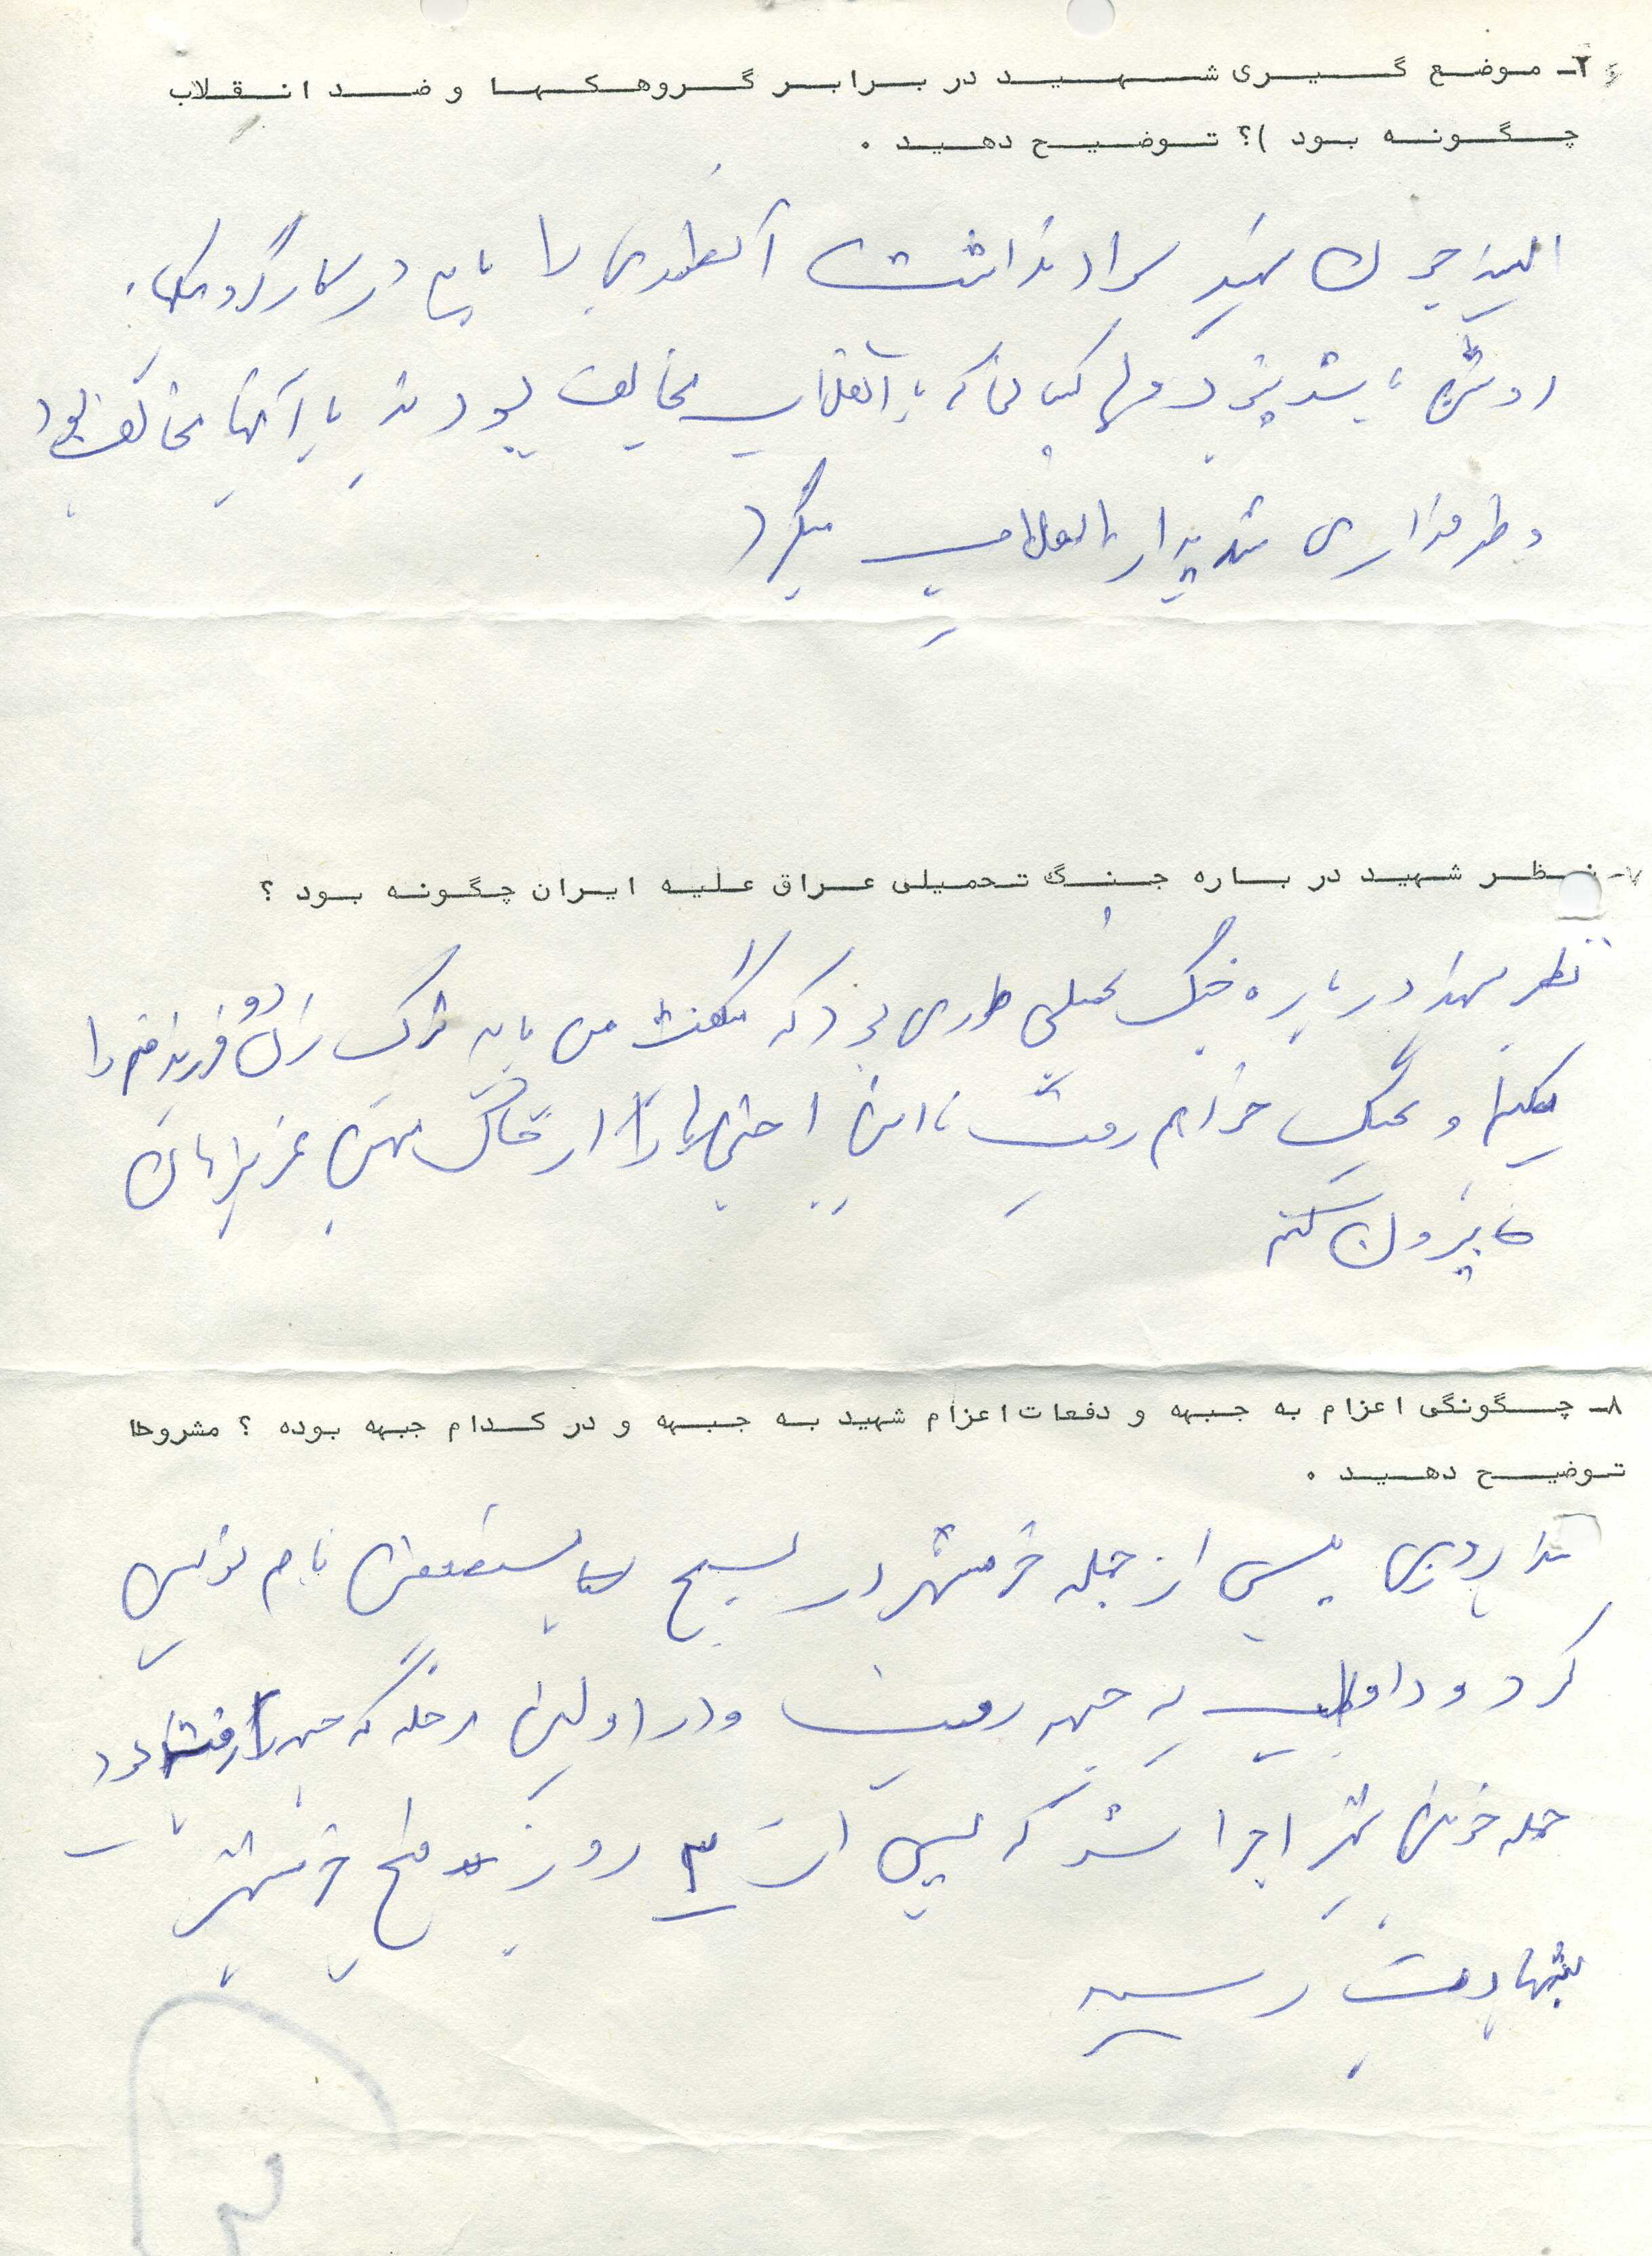 ۶- موضع گیری شهید در برابر گروهکها و ضد انقلاب
چگونه بود )؟ توضیح دهید .
البته چون شهید سواد نداشت آنطوری با در کار گروهکها
روشن باشد نبود ولی کسانی که با انقلاب مخالف بودند با آنها مخالف بود
و طرفداری شدید از انقلاب میکرد
۷- نظر شهید در باره جنگ تحمیلی عراق علیه ایران چگونه بود ؟
نظر شهید در باره جنگ تحمیلی طوری بود که میگفت من باید ترک زن و فرزندانم را
بکنم و بجنگ خواهم رفت تا این اجنبی‌ها را از خاک میهن عزیزمان
بیرون کنم
۸- چگونگی اعزام به جبهه و دفعات اعزام شهید به جبهه و در کدام جبهه بوده ؟ مشروحا
توضیح دهید .
پیش از حمله خرمشهر در بسیج مستضعفین نام نویسی
کرد و داوطلب به جبهه رفت و در اولین مرحله که جبهه رفته بود
حمله خونین شهر اجرا شد که پس از ۳ روز فتح خرمشهر
بشهادت رسید